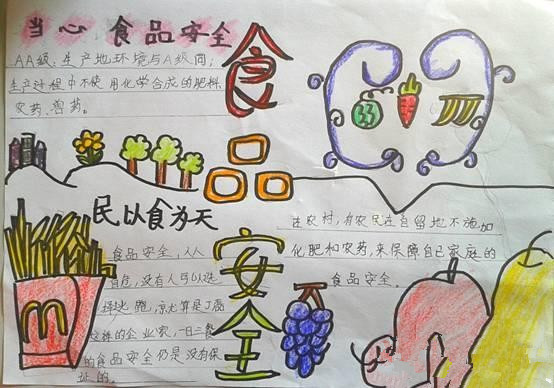 当心 食品安全
AA级:生产地环境与A级同;
生产过程中不使用化学合成的肥料、
农药、兽药。
食品安全
民以食为天
食品安全,人人
自危,没有人可以选
择逃跑,京尤算是丁磊
这样的企业家,一日三餐
的食品安全仍是没有保
证的。
在农村,有农民在自留地不施加
化肥和农药,来保障自己家庭的
食品安全。